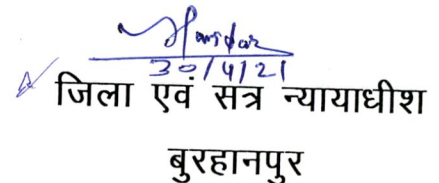 30/4/21
जिला एवं सत्र न्यायाधीश
बुरहानपुर